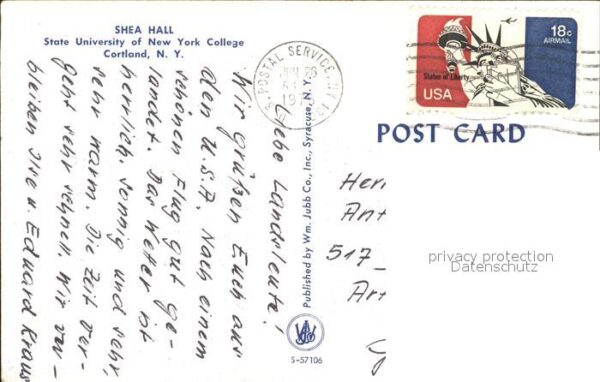 SHEA HALL
State University of New York College
Cortland, N. Y.
Liebe Landsleute!
Wir grüßen Euch aus
den U.S.A. Nach einem
schönen Flug gut ge-
landet. Das Wetter ist
herrlich, sonnig und sehr,
sehr warm. Die Zeit ver-
geht sehr schnell. Wir ver-
bleiben Ilse u. Eduard Kraus
U.S. POSTAL SERVICE
Published by Wm. Jubb Co., Inc., Syracuse, N. Y.
S-57106
18c
AIRMAIL
Statue of Liberty
USA
POST CARD
Herr
Ant
517
privacy protection
Datenschutz